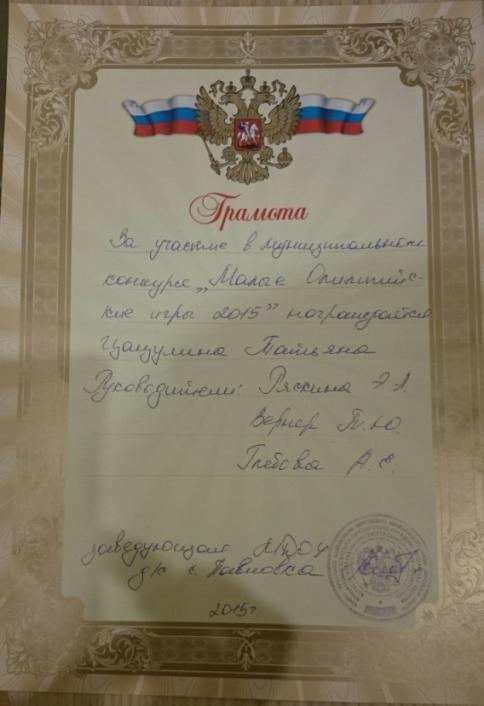 Грамота
За участие в муниципальном
конкурсе „Малые Олимпийс-
кие игры 2015” награждается
Татьяна
Руководители: Ряскина Э Л
Вернер Т. Ю.
Глебова А. Е.
заведующая МДОУ
д/к с. Павловка
2015г